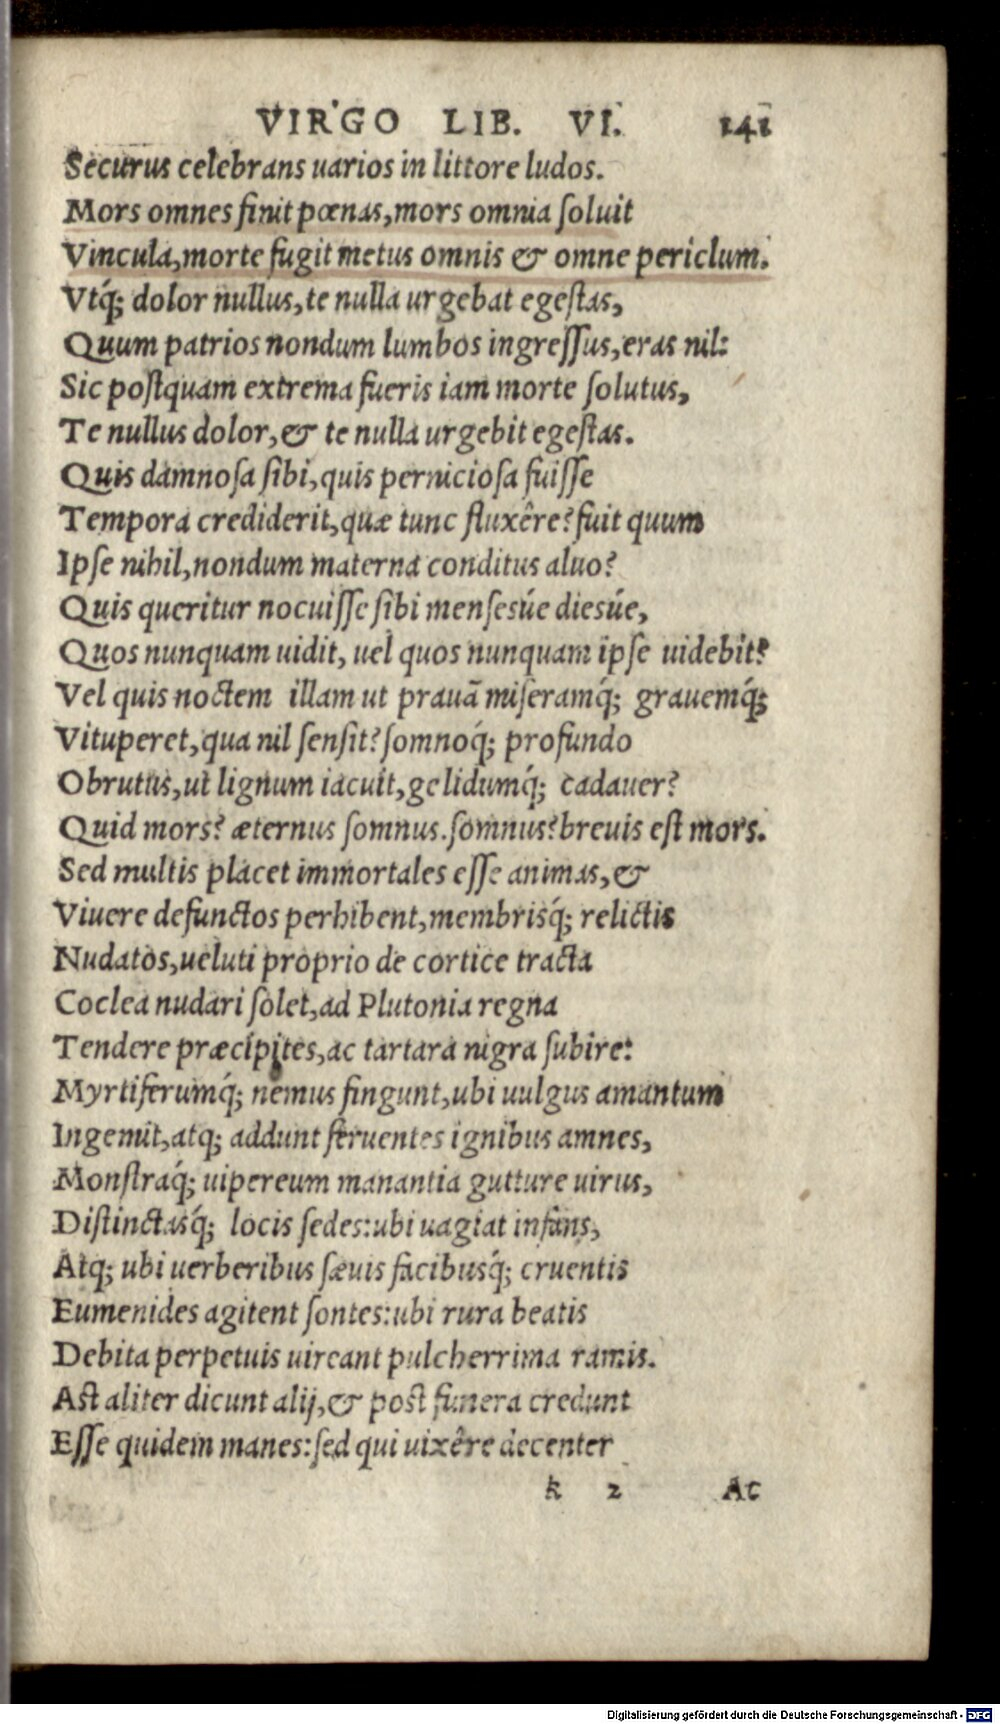 VIRGO LIB. VI. 141
Securus celebrans uarios in littore ludos.
Mors omnes finit pœnas, mors omnia ſoluit
Vincula, morte fugit metus omnis & omne periclum.
Vtq́; dolor nullus, te nulla urgebat egeſtas,
Quum patrios nondum lumbos ingreſſus, eras nil:
Sic poſtquam extrema fueris iam morte ſolutus,
Te nullus dolor, & te nulla urgebit egeſtas.
Quis damnoſa ſibi, quis pernicioſa fuiſſe
Tempora crediderit, quæ tunc fluxêre? fuit quum
Ipſe nihil, nondum materna conditus aluo?
Quis queritur nocuiſſe ſibi menſesúe diesúe,
Quos nunquam uidit, uel quos nunquam ipſe uidebit?
Vel quis noctem illam ut prauã miſeramq́; grauemq́;
Vituperet, qua nil ſenſit? ſomnoq́; profundo
Obrutus, ut lignum iacuit, gelidumq́; cadauer?
Quid mors? æternus ſomnus. ſomnus? breuis eſt mors.
Sed multis placet immortales eſſe animas, &
Viuere defunctos perhibent, membrisq́; relictis
Nudatos, ueluti proprio de cortice tracta
Coclea nudari ſolet, ad Plutonia regna
Tendere præcipites, ac tartara nigra ſubire:
Myrtiferumq́; nemus fingunt, ubi uulgus amantum
Ingemit, atq; addunt feruentes ignibus amnes,
Monſtraq́; uipereum manantia gutture uirus,
Diſtinctasq́; locis ſedes: ubi uagiat infans,
Atq; ubi uerberibus ſæuis facibusq́; cruentis
Eumenides agitent ſontes: ubi rura beatis
Debita perpetuis uireant pulcherrima ramis.
Aſt aliter dicunt alij, & poſt funera credunt
Eſſe quidem manes: ſed qui uixêre decenter
k 2 Ac
Digitalisierung gefördert durch die Deutsche Forschungsgemeinschaft - DFG